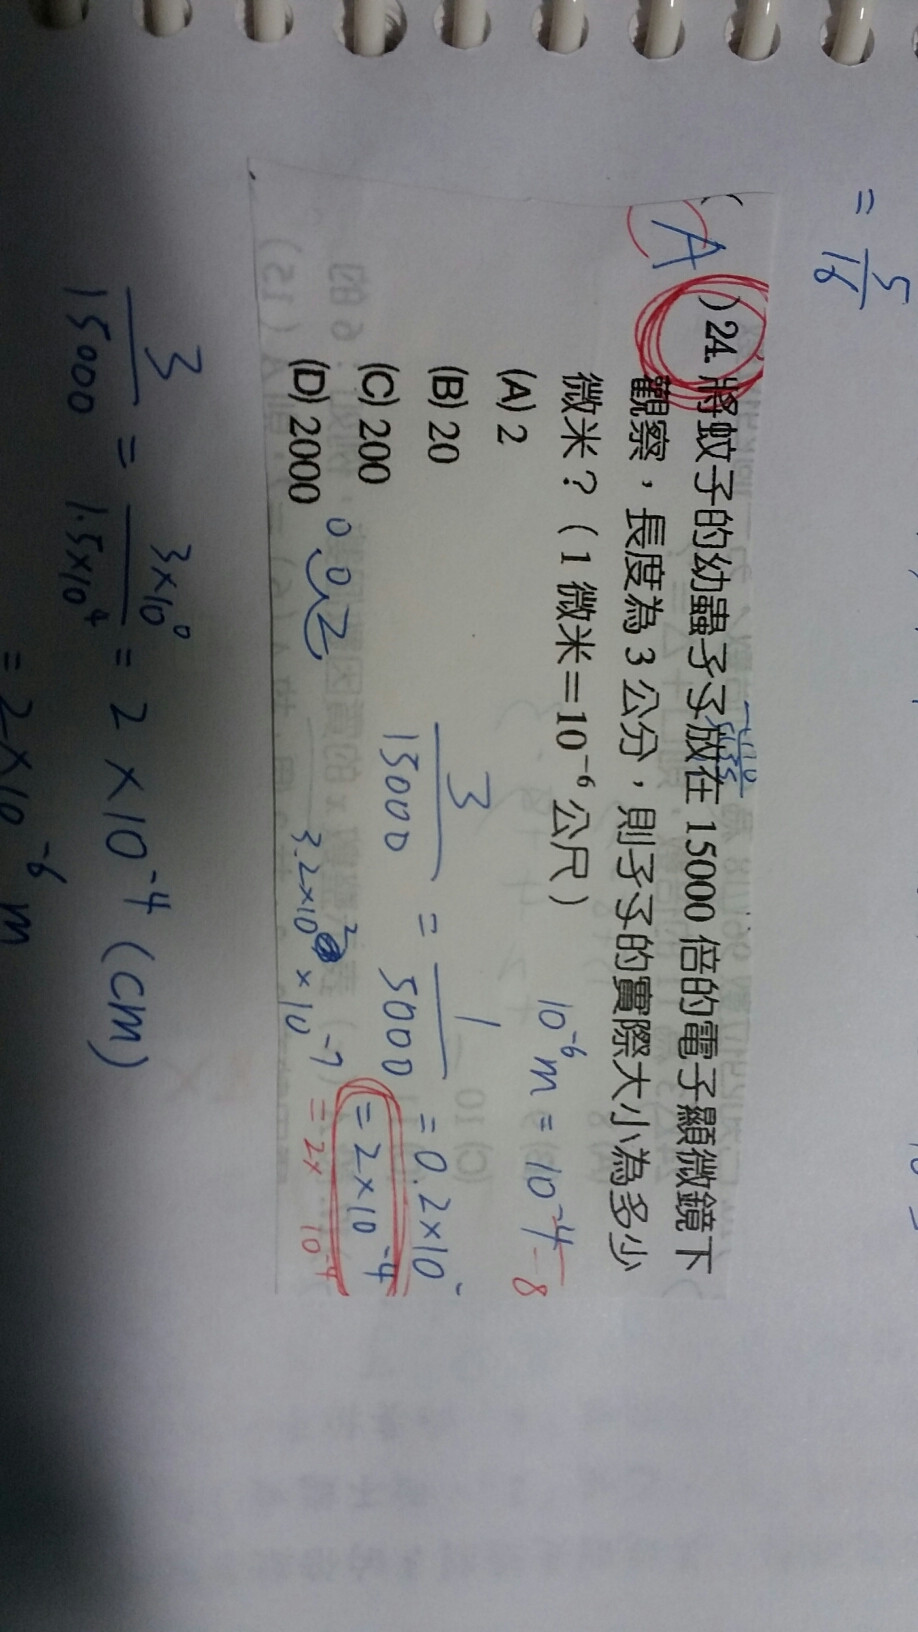 = 5/18
A
( ) 24. 將蚊子的幼蟲孑孓放在 15000 倍的電子顯微鏡下
觀察，長度為 3 公分，則孑孓的實際大小為多少
微米？（1 微米＝10⁻⁶ 公尺）
10⁻⁶ m = 10⁻⁴
(A) 2
(B) 20
(C) 200
(D) 2000
3/15000 = 1/5000 = 0.2×10
= 2×10⁻⁴
0.2
= 2× 10⁻⁴
3/15000 = 3×10⁰/1.5×10⁴ = 2 ×10⁻⁴ (cm)
= 2×10⁻⁶ m